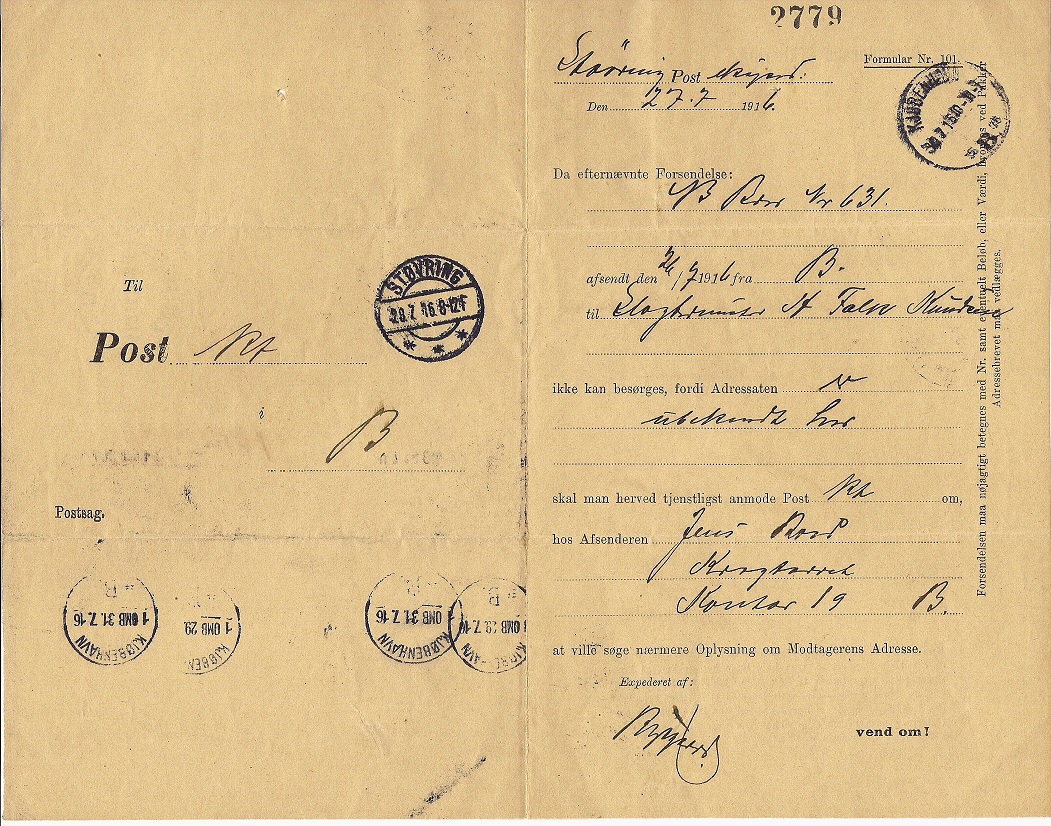 2779
Formular Nr. 101.
Støvring Post
Den 27.7 1916.
KJØBENHAVN
B
Da efternævnte Forsendelse:
Nr 631.
afsendt den 26/7 1916 fra B.
til Slagtermester A Falk Knudsen
ikke kan besørges, fordi Adressaten er
ubekendt her
skal man herved tjenstligst anmode Post kt om,
hos Afsenderen Jens
Kontor 19 B.
at ville søge nærmere Oplysning om Modtagerens Adresse.
Expederet af:
vend om!
Forsendelsen maa nøjagtigt betegnes med Nr. samt eventuelt Beløb, eller Værdi, hvorhos ved Pakker
Adressebrevet maa vedlægges.
Til
STØVRING
28.7.16 8-12F
Post kt
i
B
Postsag.
1 OMB 31.7.16
KJØBENHAVN
1 OMB 29
KJØBEN
1 OMB 31.7.16
KJØBENHAVN
OMB 29.7.16